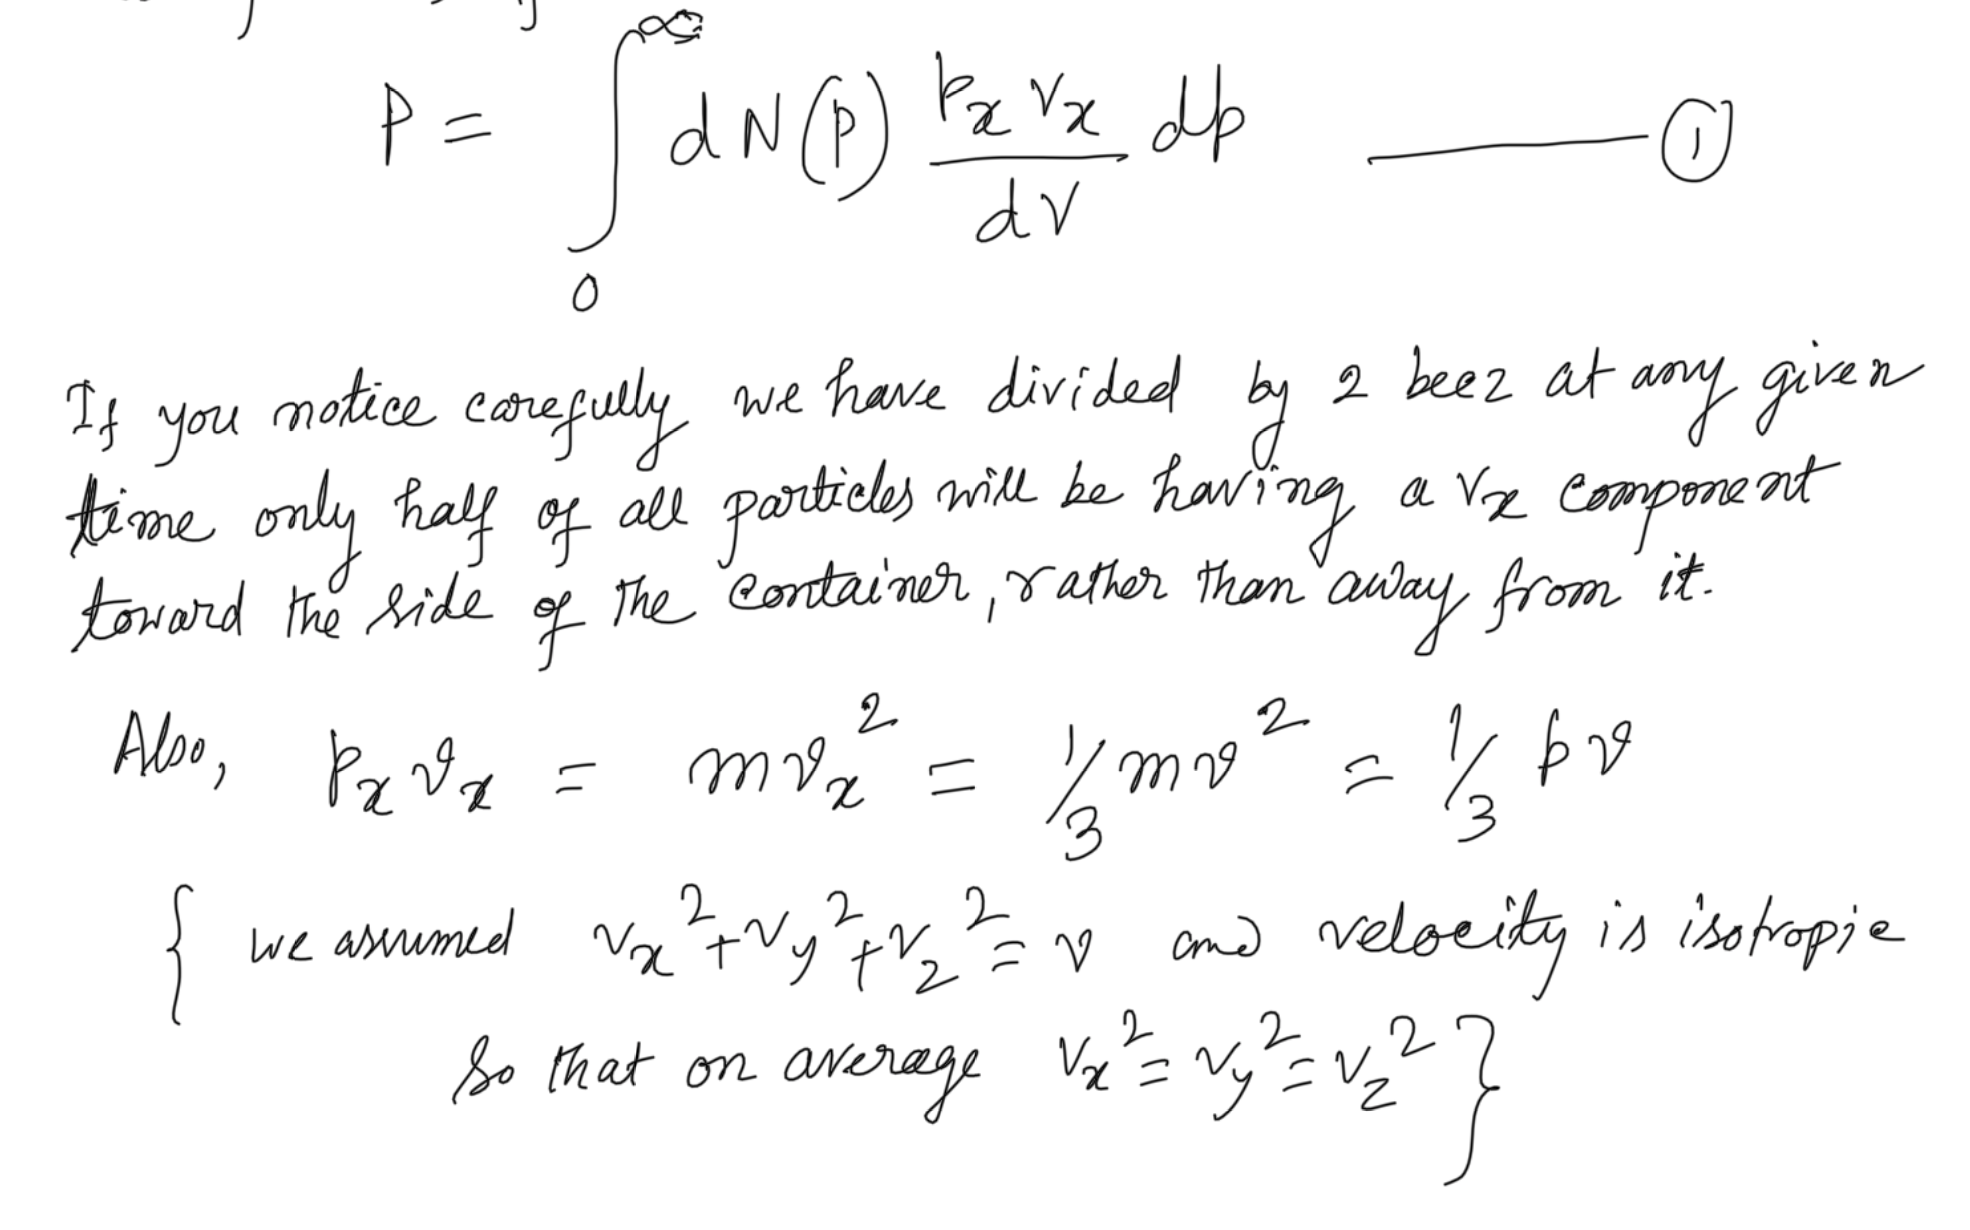 P = ∫₀^∞ dN(p) (pₓ vₓ / dV) dp ——— ①
If you notice carefully we have divided by 2 becz at any given
time only half of all particles will be having a vₓ component
toward the side of the container, rather than away from it.
Also, pₓ vₓ = m vₓ² = 1/3 m v² = 1/3 p v
{ we assumed vₓ² + v_y² + v_z² = v and velocity is isotropic
so that on average vₓ² = v_y² = v_z² }